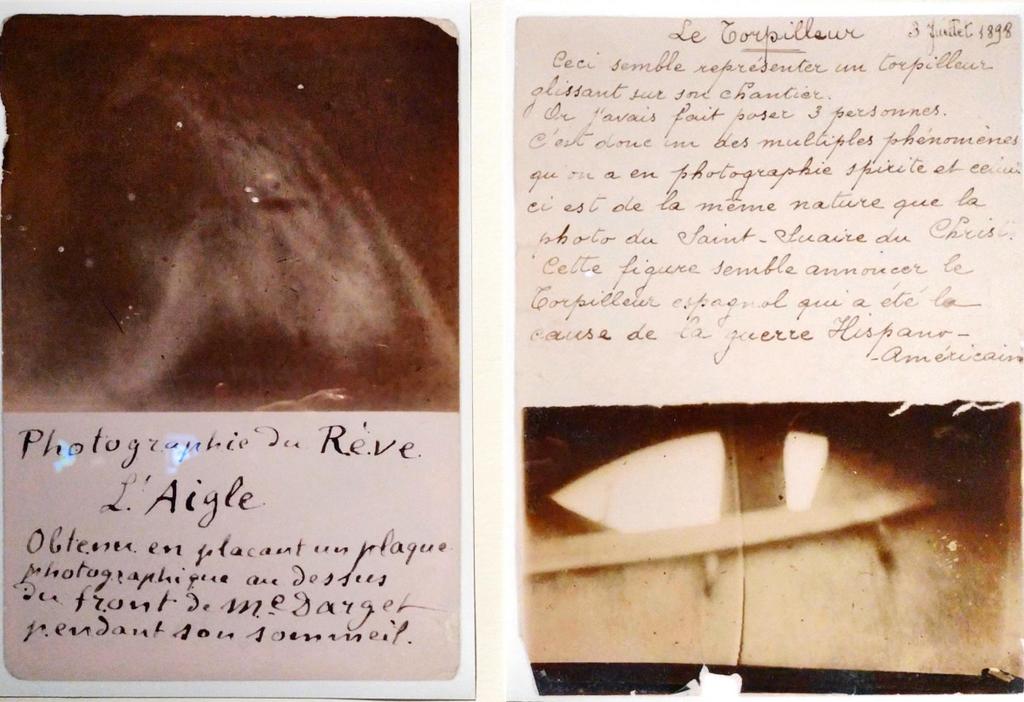 Photographie du Rêve
L'Aigle
Obtenu en placant un plaque
photographique au dessus
du front de Me Darget
pendant son sommeil.
Le Torpilleur 3 Juillet 1898
Ceci semble représenter un torpilleur
glissant sur son chantier.
Or j'avais fait poser 3 personnes.
C'est donc un des multiples phénomènes
qu'on a en photographie spirite et celui
ci est de la même nature que la
photo du Saint-Suaire du Christ.
Cette figure semble annoncer le
Torpilleur espagnol qui a été la
cause de la guerre Hispano-
-Américain